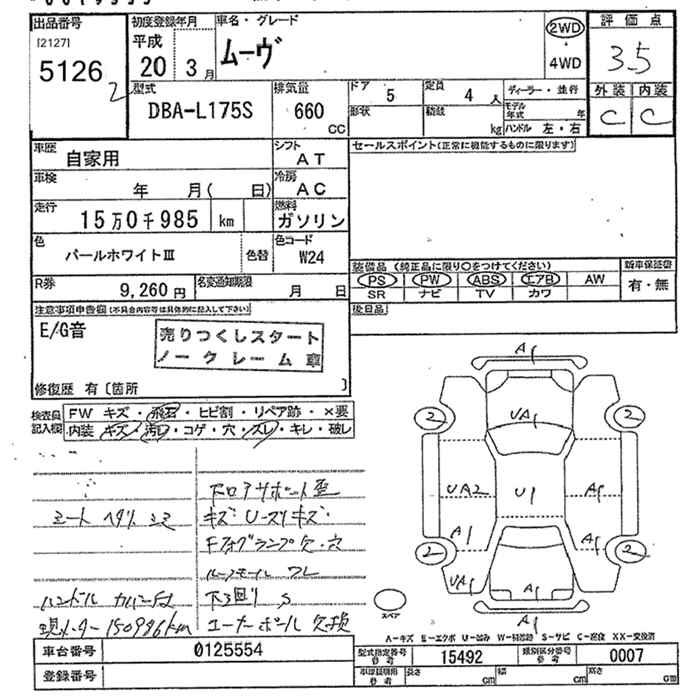 出品番号 初度登録年月 車名・グレード 評価点
[2127] 平成 ムーヴ 2WD 3.5
5126 20 3月 4WD
2
型式 排気量 ドア 5 定員 4人 ディーラー・並行 外装 内装
DBA-L175S 660 CC 形状 積載 kg モデル年式 年 C C
ハンドル 左・右
車歴 自家用 シフト AT セールスポイント(正常に機能するものに限ります)
車検 年 月( 日) 冷房 AC
走行 15万0千985 km 燃料 ガソリン
色 パールホワイトⅢ 色替 色コード W24
装備品 (純正品に限り○をつけてください) 新車保証書
R券 9,260円 名変通知期限 月 日 PS PW ABS エアB AW 有・無
SR ナビ TV カワ
注意事項申告欄(不具合内容等は具体的に記入して下さい) 後日品
E/G音
売りつくしスタート
ノークレーム車
修復歴 有〔箇所 〕
検査員 FW キズ・飛石・ヒビ割・リペア跡・×要
記入欄 内装 キズ・汚れ・コゲ・穴・スレ・キレ・破レ
A1
2 UA1 2
UA2 U1 A1
A1 A1
2 2
UA1 A1
A1
シート ヘタリ シミ
ドロアサポート歪
キズ Uースリキズ
Fフォグランプ欠・穴
ルーフモール ワレ
ハンドル カバー付 下廻り S
現メーター150986km コーナーポール欠損
スペア
A-キズ E-エクボ U-凹み W-補修跡 S-サビ C-腐食 XX-交換済
車台番号 0125554 型式指定番号 参考 15492 類別区分番号 参考 0007
登録番号 車庫証明用 参考 長さ cm 幅 cm 高さ cm